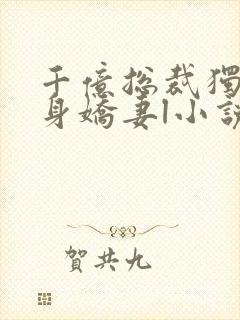 千億总裁獨
身嬌妻|小說
賀共九